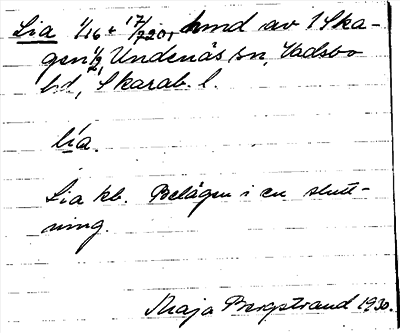 Lia 1/16 + 17/720, hmd av 1 Ska-
gen 1/2, Undenäs sn, Vadsbo
hd, Skarab. l.
lía.
Lia kb. Belägen i en slutt-
ning.
Maja Bergstrand 1930.